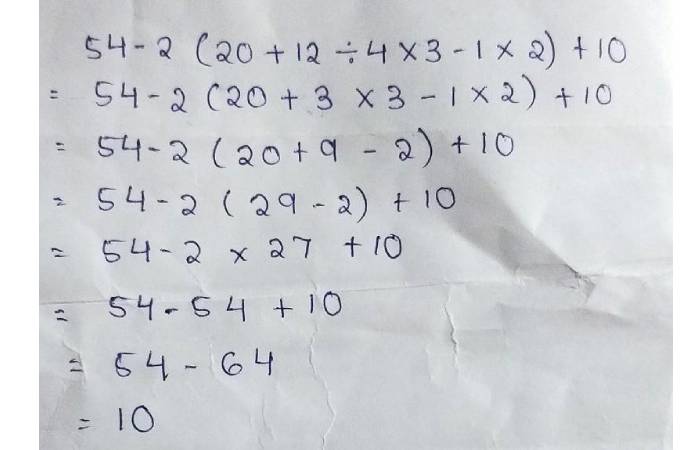 54-2 (20+12÷4×3-1×2)+10
= 54-2(20+3×3-1×2)+10
= 54-2(20+9-2)+10
= 54-2(29-2)+10
= 54-2×27+10
= 54-54+10
= 54-64
= 10